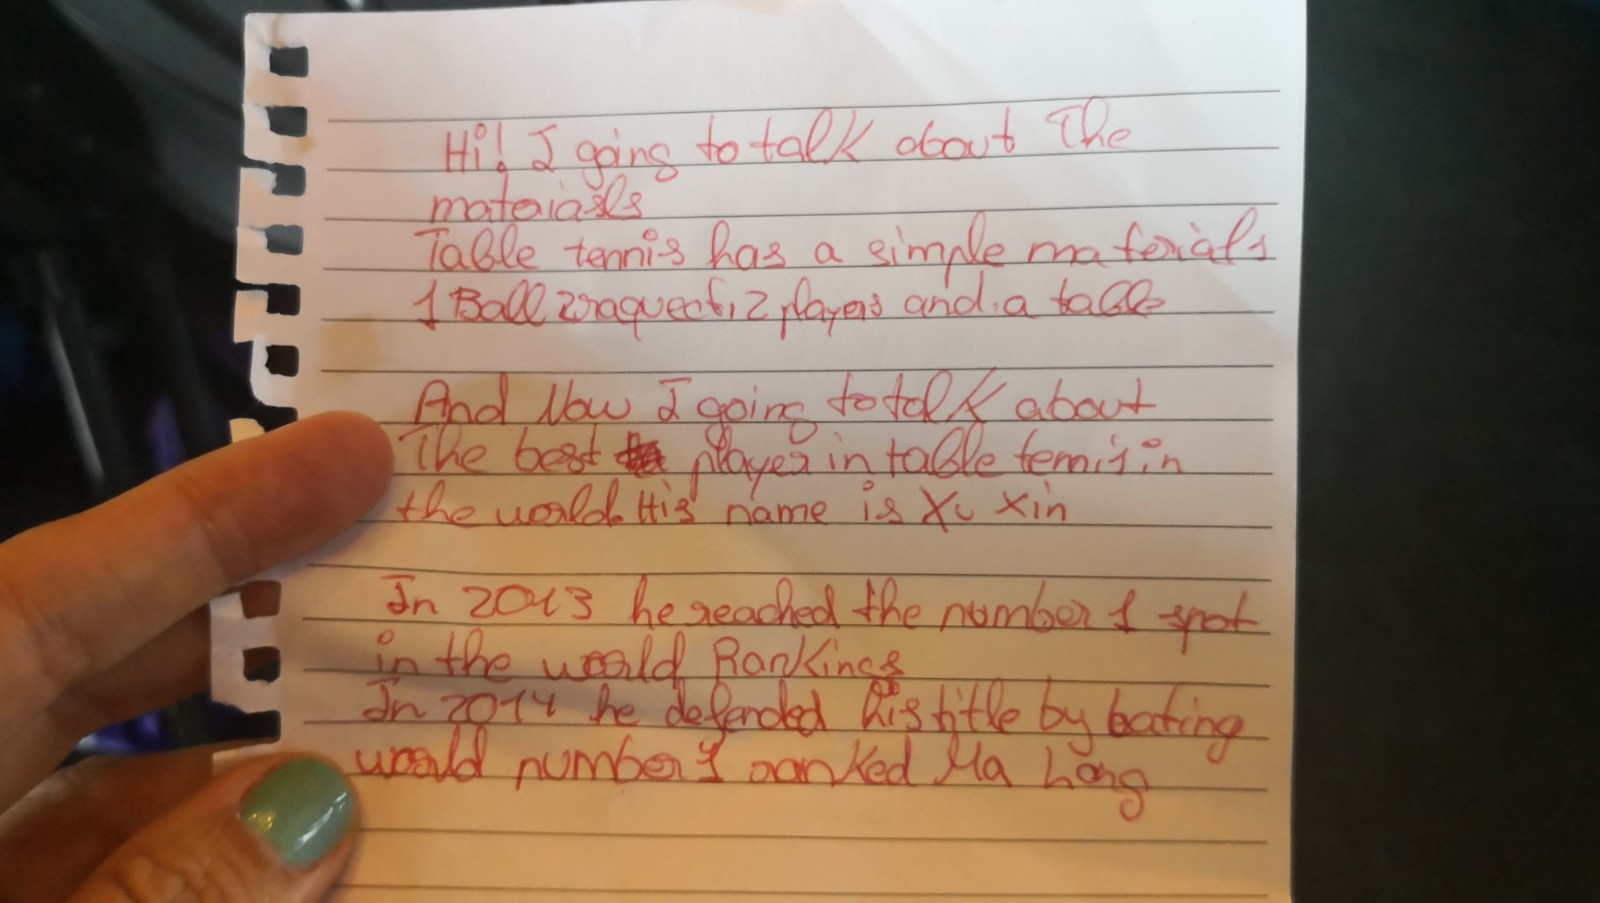 Hi! I going to talk about The
mataiasls
Table tennis has a simple materials
1 Ball 2 raquect, 2 players and a table
And Now I going to talk about
The best player in table temis in
the world. His name is Xu Xin
In 2013 he reached the number 1 spot
in the world Rankings
In 2014 he defended his title by beating
world number 1 ranked Ma Long